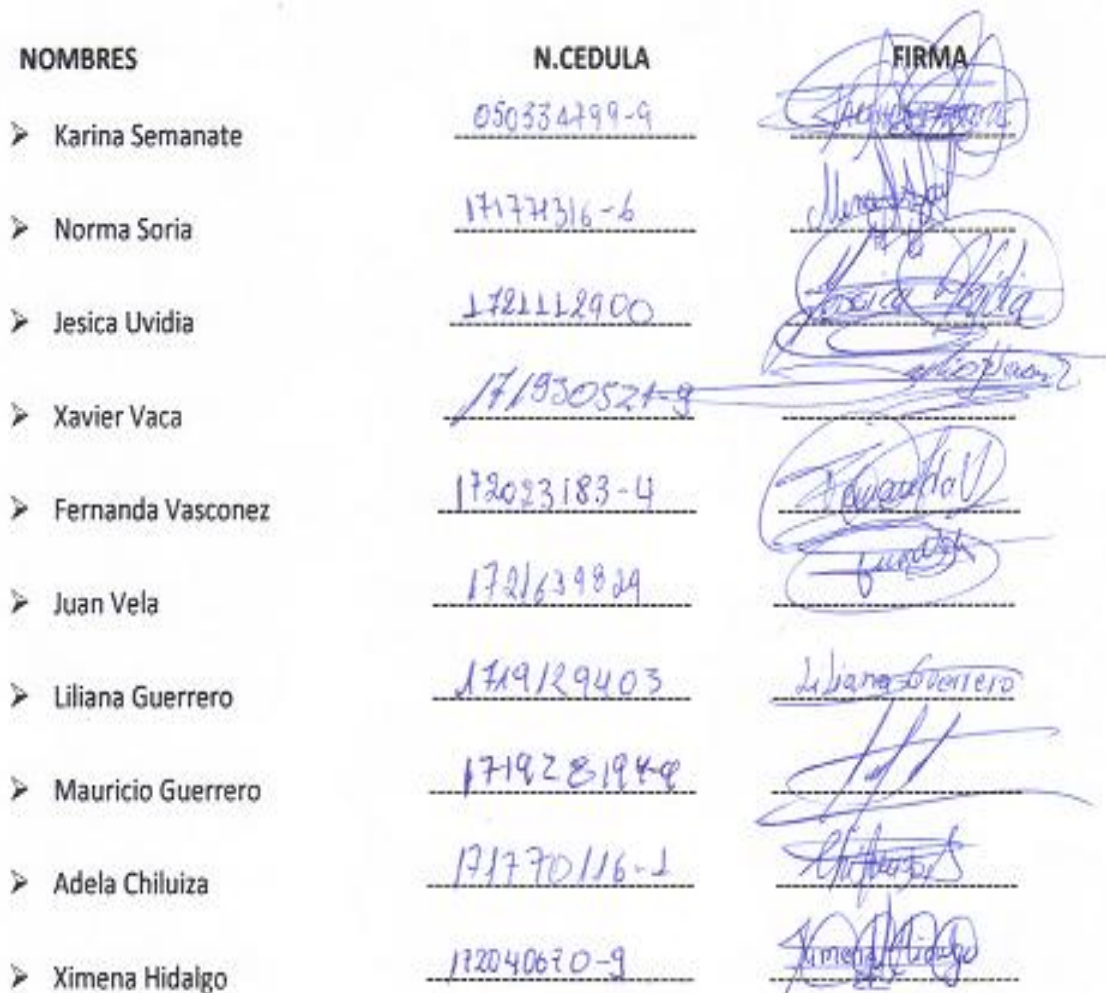 NOMBRES N.CEDULA FIRMA
➢ Karina Semanate 050334799-9
➢ Norma Soria 171771316-6
➢ Jesica Uvidia 1721112900 Jesica Uvidia
➢ Xavier Vaca 171930521-9
➢ Fernanda Vasconez 172023183-4 Fernanda V
➢ Juan Vela 1721639829
➢ Liliana Guerrero 1719129403 Liliana Guerrero
➢ Mauricio Guerrero
➢ Adela Chiluiza 171770116-1
➢ Ximena Hidalgo 172040670-9 Ximena Hidalgo